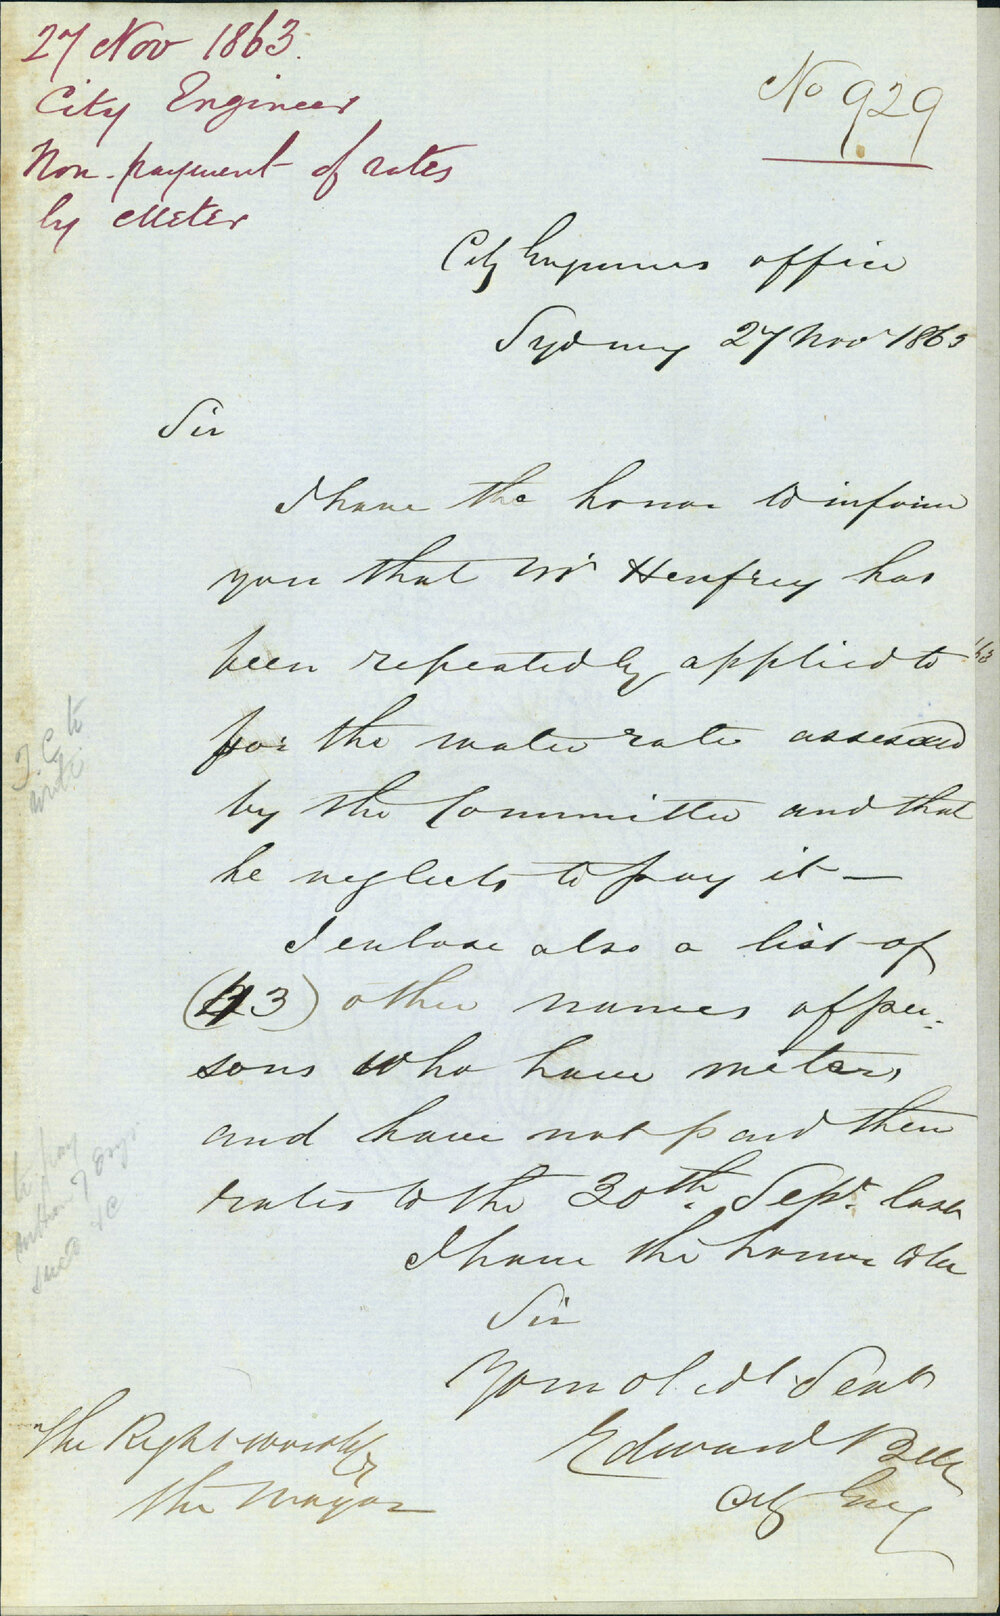 27 Nov 1863.
City Engineer
Non-payment of rates
by Meter
No 929
City Engineers office
Sydney 27 Nov 1863
Sir
I have the honor to inform
you that Mr Henfrey has
been repeatedly applied to
for the water rate assessed
by the Committee and that
he neglects to pay it —
I enclose also a list of
(43) other names of per-
sons who have meters
and have not paid their
rates to the 30th Sept. last
I have the honor to be
Sir
Your obedt Servt
Edward Bell
City Eng
The Right worshipf
the Mayor
T. C. to
write
to pay
7 days
63